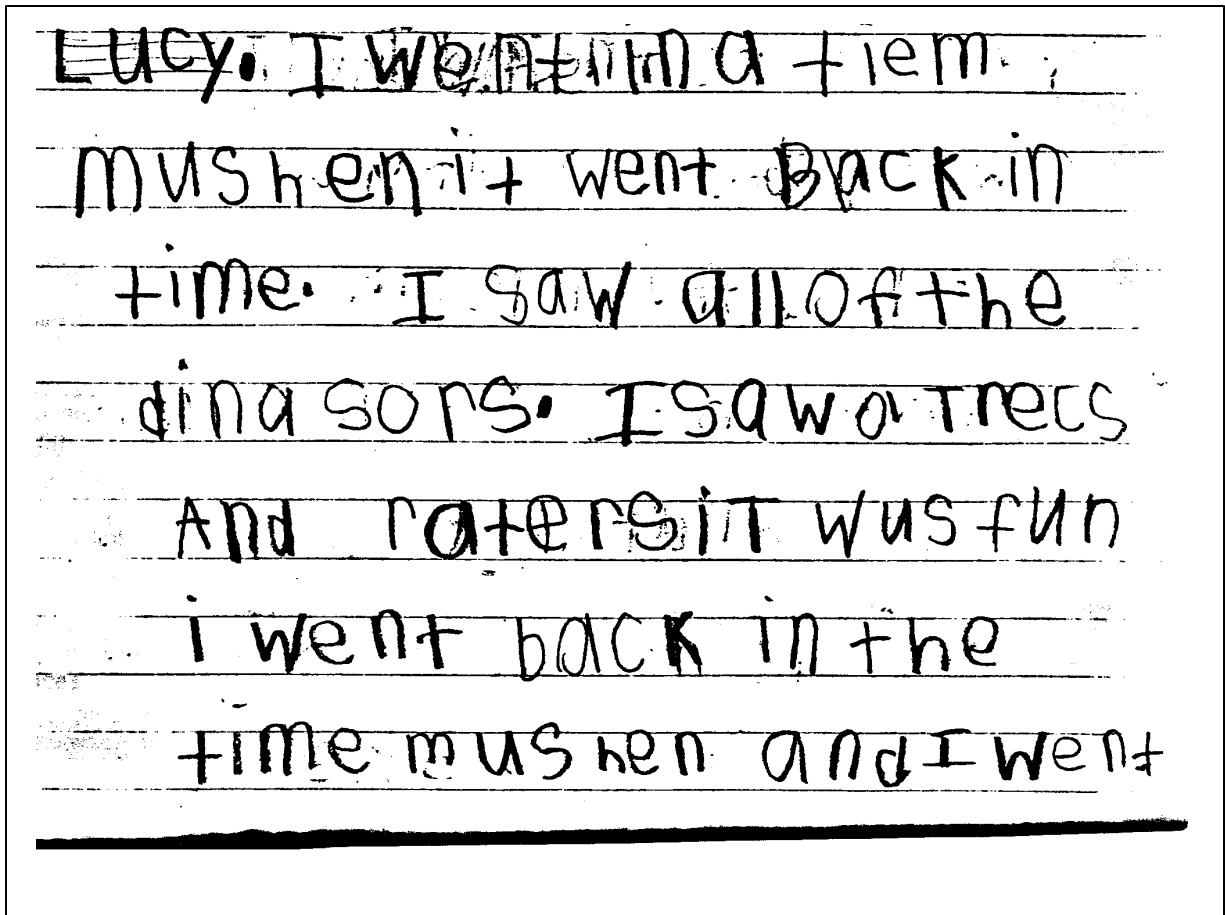 Lucy. I went in a tiem
mushen it went Back in
time. I saw all of the
dinasors. I saw a Trecs
And raters iT wus fun
i went back in the
time mushen and I went